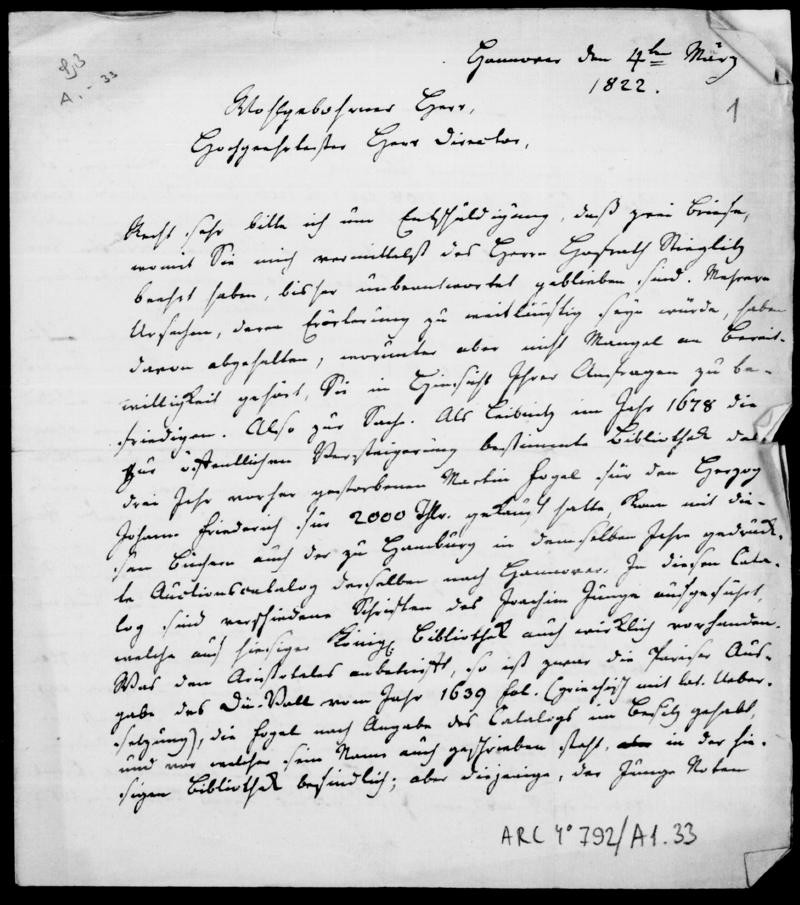 A. - 33
Hannover den 4ten März
1822.
1
Wohlgebohrner Herr,
Hochgeehrtester Herr Director,
Recht sehr bitte ich um Entschuldigung, daß zwei Briefe,
womit Sie mich vermittelst des Herrn Hofrath Stieglitz
beehrt haben, bisher unbeantwortet geblieben sind. Mehrere
Ursachen, deren Erörterung zu weitläuftig seyn würde, haben
davon abgehalten, worunter aber nicht Mangel an Bereit-
willigkeit gehört, Sie in Hinsicht Ihrer Anfragen zu be-
friedigen. Also zur Sache. Als Leibnitz im Jahr 1678 die
zur öffentlichen Versteigerung bestimmte Bibliothek des
drei Jahr vorher gestorbenen Martin Fogel für den Herzog
Johann Friederich für 2000 Thlr. gekauft hatte, kam mit die-
sen Büchern auch der zu Hamburg in demselben Jahre gedruck-
te Auctionscatalog derselben nach Hannover. In diesem Cata-
log sind verschiedene Schriften des Joachim Junge aufgeführt,
welche auf hiesiger Königl. Bibliothek auch wirklich vorhanden.
Was den Aristoteles anbetrifft, so ist zwar die Pariser Aus-
gabe des Du-Vall vom Jahr 1639 fol. (griechisch mit lat. Ueber-
setzung), die Fogel nach Angabe des Catalogs im Besitz gehabt,
und vor welcher sein Name auch geschrieben steht, in der hie-
sigen Bibliothek befindlich; aber diejenige, der Junge Noten
ARC 4° 792/A1.33